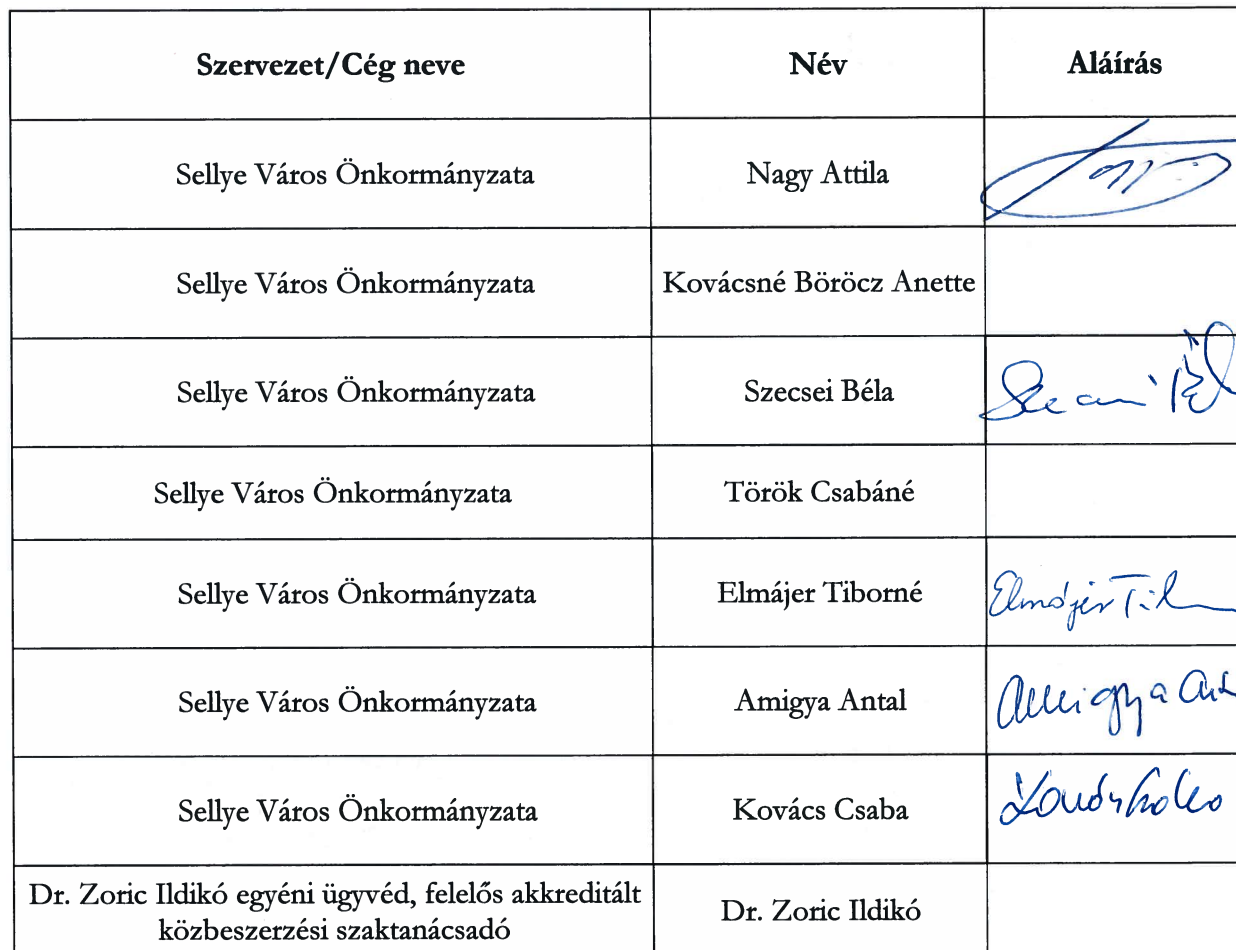 Szervezet/Cég neve Név Aláírás
Sellye Város Önkormányzata Nagy Attila
Sellye Város Önkormányzata Kovácsné Böröcz Anette
Sellye Város Önkormányzata Szecsei Béla
Sellye Város Önkormányzata Török Csabáné
Sellye Város Önkormányzata Elmájer Tiborné Elmájer
Sellye Város Önkormányzata Amigya Antal Amigya
Sellye Város Önkormányzata Kovács Csaba
Dr. Zoric Ildikó egyéni ügyvéd, felelős akkreditált
közbeszerzési szaktanácsadó
Dr. Zoric Ildikó